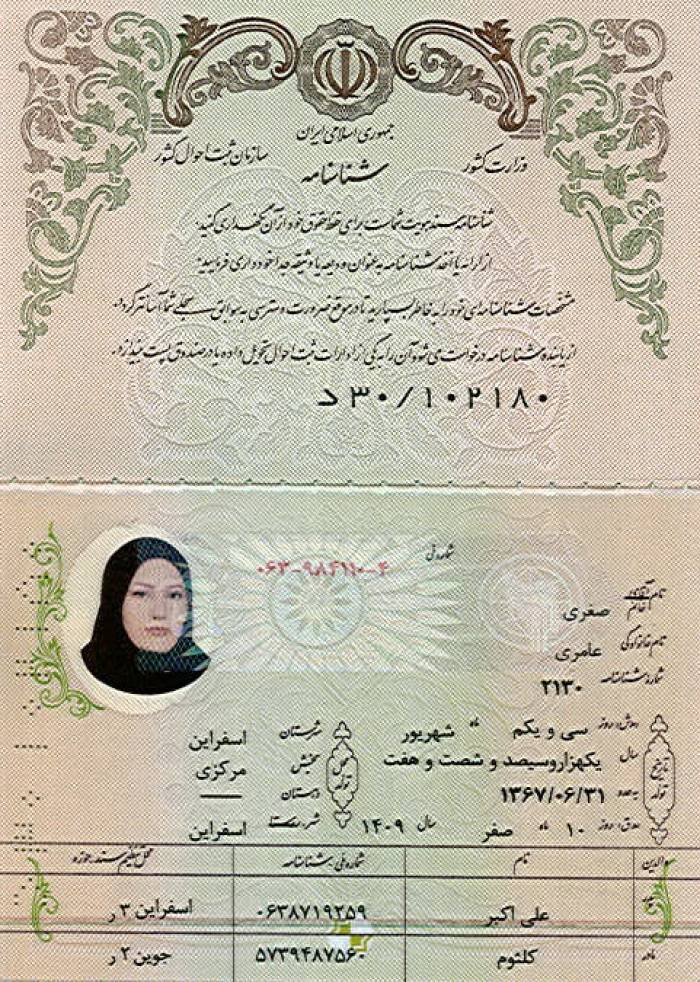 جمهوری اسلامی ایران
وزارت کشور
سازمان ثبت احوال کشور
شناسنامه
شناسنامه سند هویت شماست برای حفظ حقوق خود از آن نگهداری کنید.
از ارائه یا اخذ شناسنامه به عنوان ودیعه یا وثیقه جداً خودداری فرمایید.
مشخصات شناسنامه‌ای خود را به خاطر بسپارید تا در موقع ضرورت دسترسی به سوابق سجلی شما آسانتر گردد.
از یابنده شناسنامه درخواست می شود آن را به یکی از ادارات ثبت احوال تحویل داده یا در صندوق پست بیندازد.
د۳۰/۱۰۲۱۸۰
شماره ملی
نام آقای خانم صغری
نام خانوادگی عامری
شماره شناسنامه ۲۱۳۰
تاریخ تولد
روز سی و یکم ماه شهریور
سال یکهزاروسیصد و شصت و هفت
به عدد ۱۳۶۷/۰۶/۳۱
روز ۱۰ ماه صفر سال ۱۴۰۹
محل تولد
شهرستان اسفراین
بخش مرکزی
دهستان ——
شهر اسفراین
والدین نام شماره ملی شناسنامه محل تنظیم سند حوزه
پدر علی اکبر ۰۶۳۸۷۱۹۲۵۹ اسفراین ۳ ر
مادر کلثوم ۵۷۳۹۴۸۷۵۶۰ جوین ۲ ر